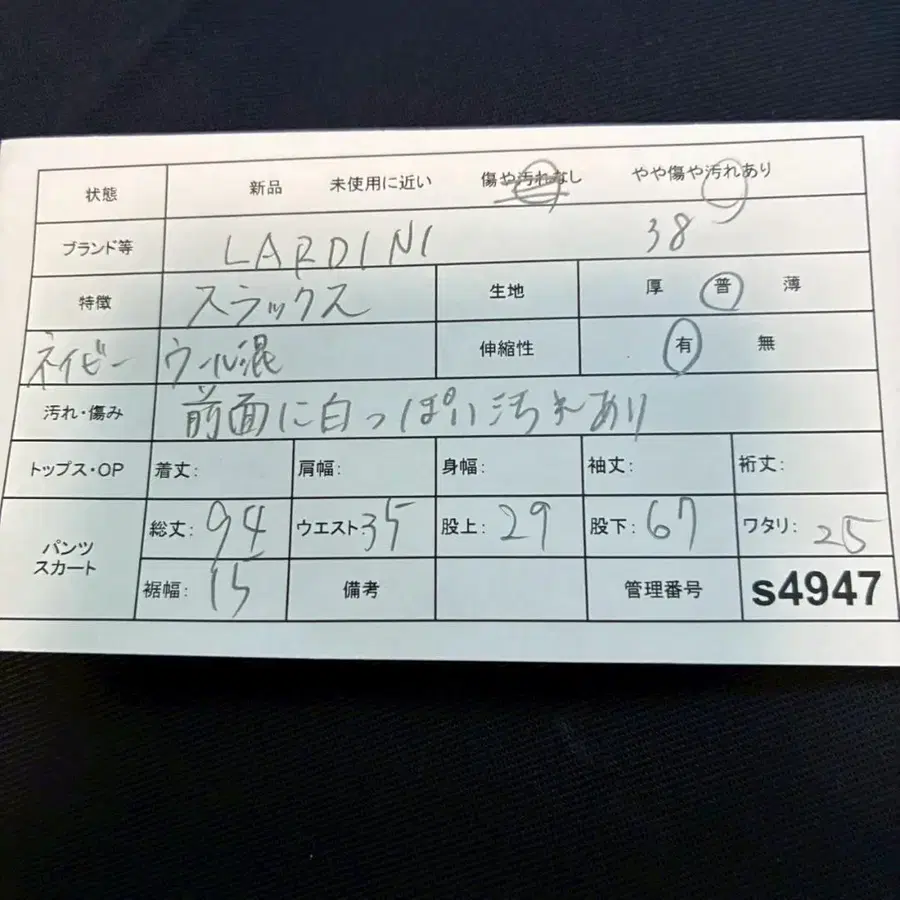 状態 新品 未使用に近い 傷や汚れなし やや傷や汚れあり
ブランド等 LARDINI 38
特徴 スラックス 生地 厚 普 薄
ネイビー ウール混 伸縮性 有 無
汚れ・傷み 前面に白っぽい汚れあり
トップス・OP 着丈: 肩幅: 身幅: 袖丈: 裄丈:
パンツ スカート 総丈: 94 ウエスト: 35 股上: 29 股下: 67 ワタリ: 25
裾幅: 15 備考 管理番号 s4947